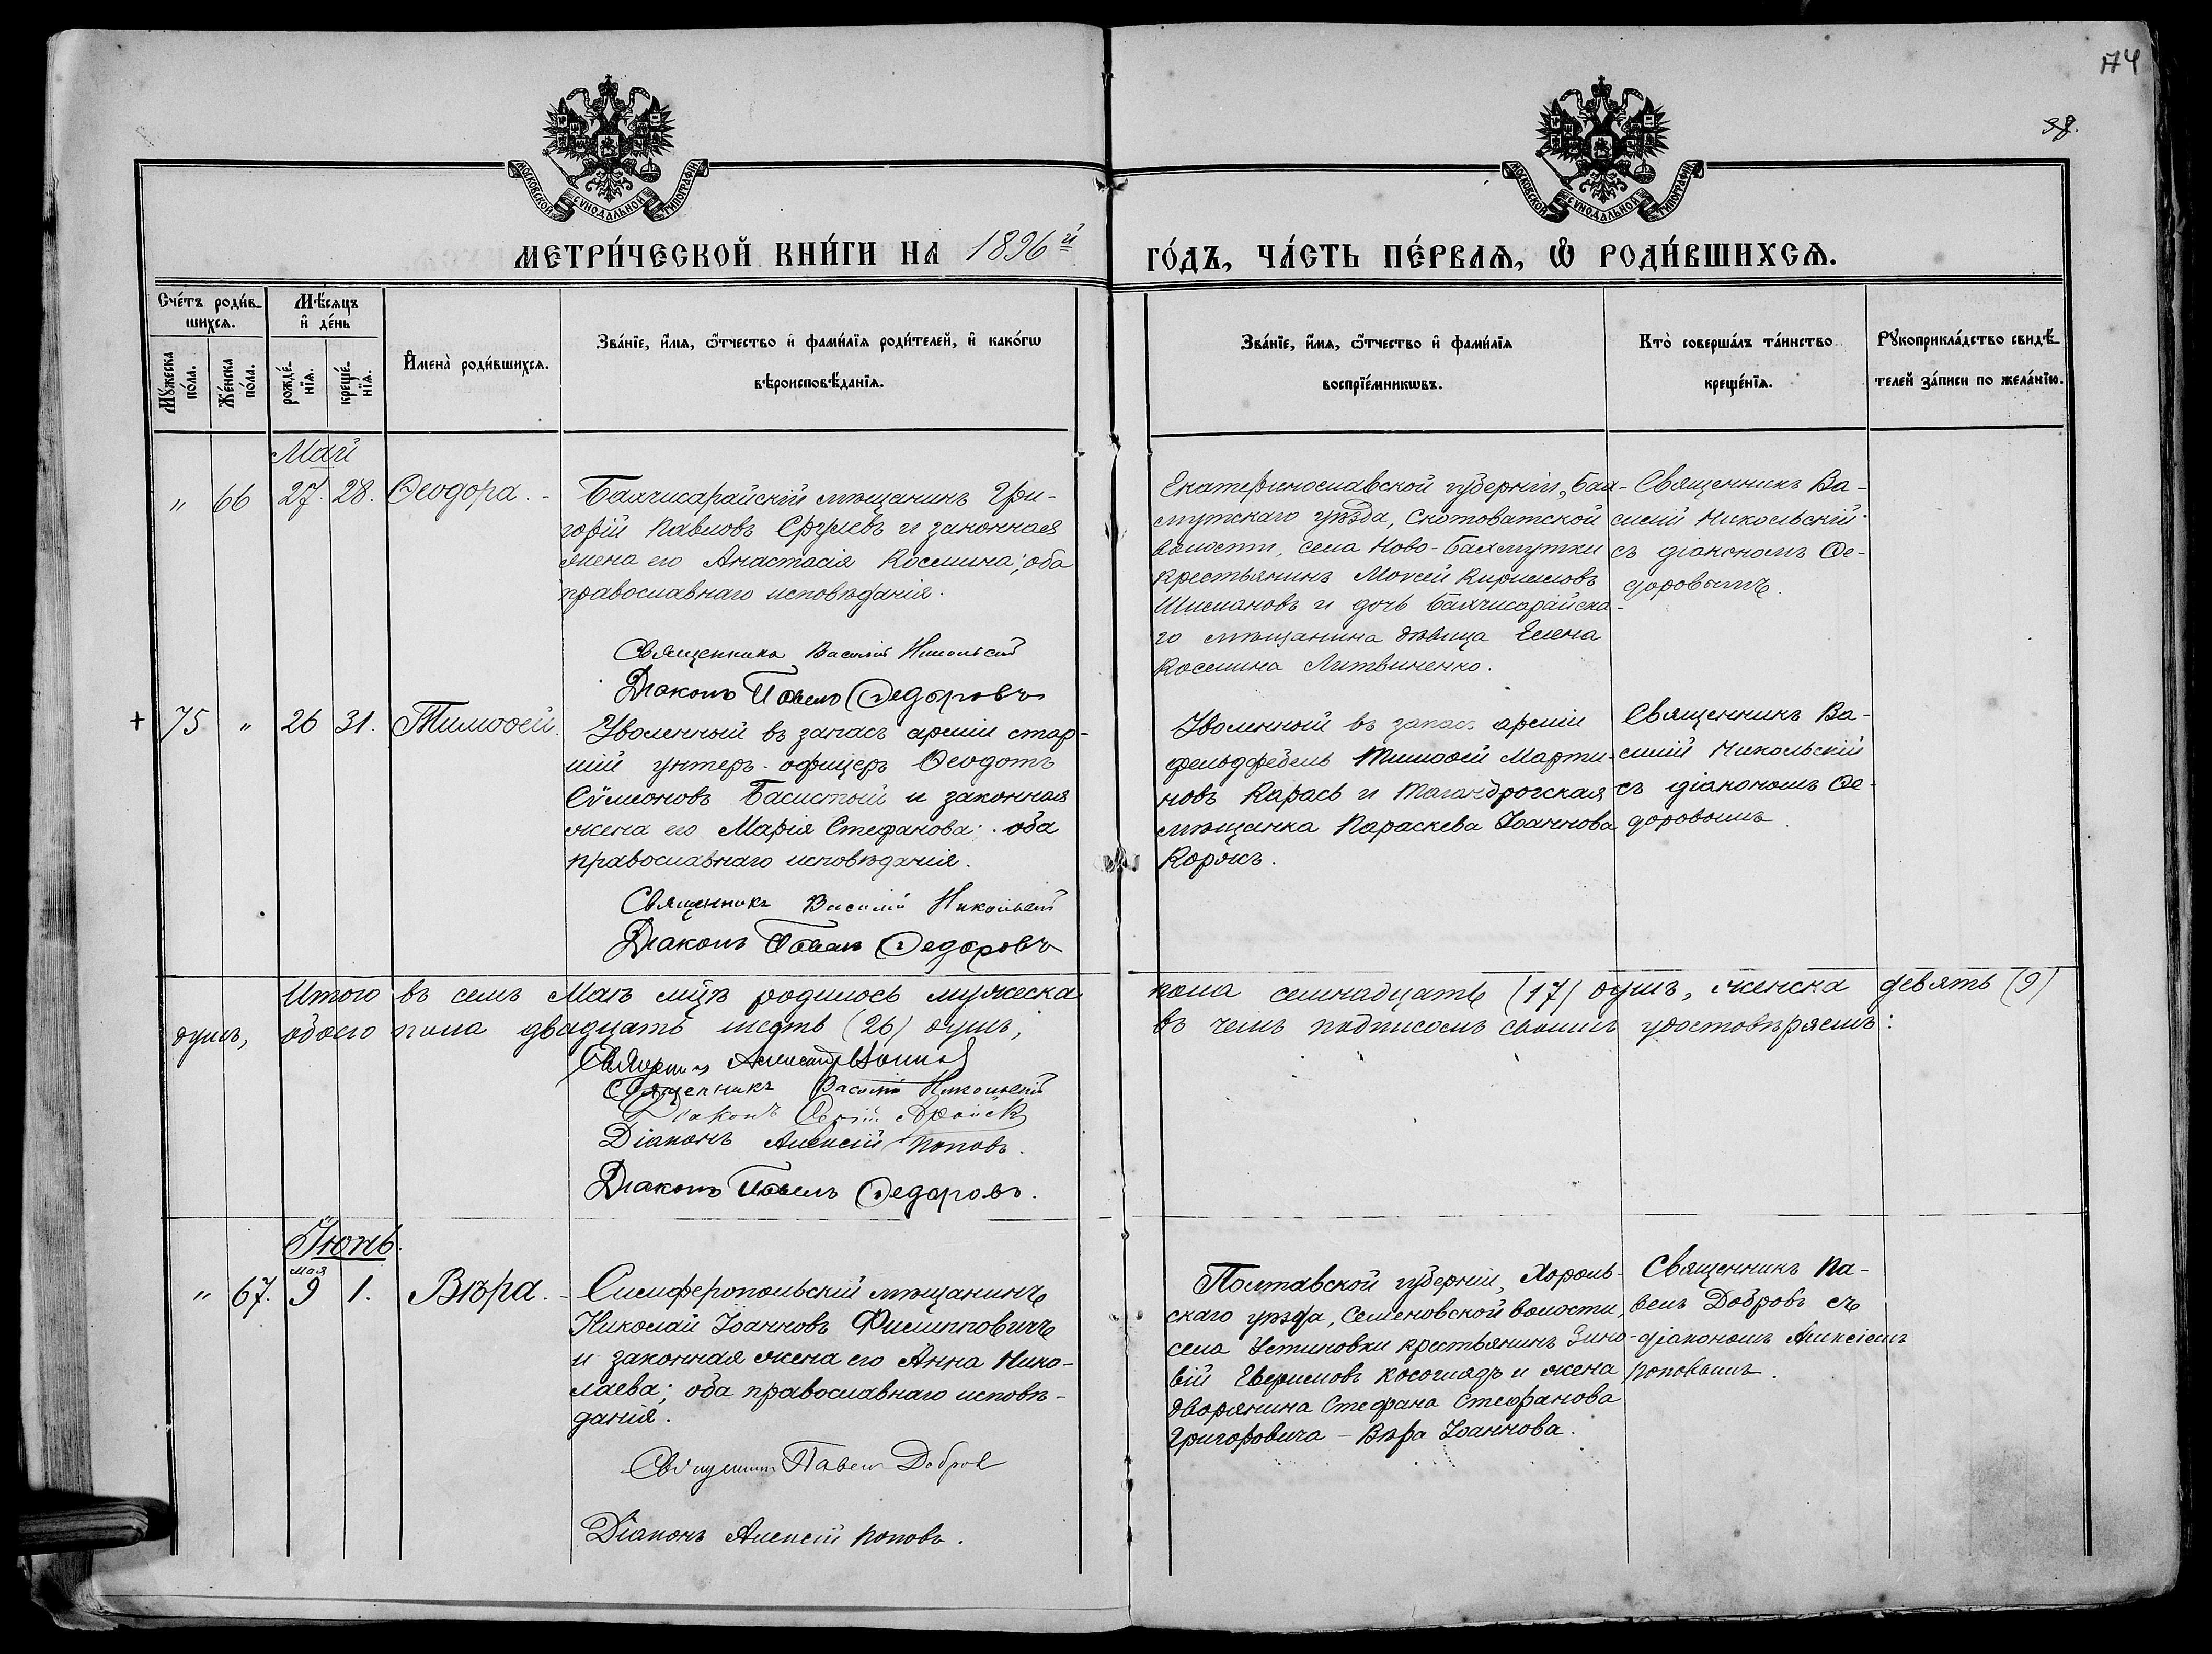 174
38.
МОСКОВСКОЙ СУНОДАЛЬНОЙ ТИПОГРАФІИ
МОСКОВСКОЙ СУНОДАЛЬНОЙ ТИПОГРАФІИ
МЕТРИ́ЧЕСКОЙ КНИ́ГИ НА 1896й ГО́ДЪ, ЧА́СТЬ ПЕ́РВАѦ, Ѡ҆ РОДИ́ВШИХСѦ.
Сче́тъ роди́в-
шихсѧ.
Мѣ́сѧцъ
и҆ де́нь
Мꙋ́жеска по́ла.
Же́нска по́ла.
рожде́-
нїѧ.
креще́-
нїѧ.
И҆мена̀ роди́вшихсѧ.
Зва́нїе, и҆́мѧ, ѻ҆́тчество и҆ фамѝлїѧ роди́телей, и҆ како́гѡ
вѣроисповѣ́данїѧ.
Зва́нїе, и҆́мѧ, ѻ҆́тчество и҆ фами́лїѧ
воспрїе́мникѡвъ.
Кто̀ соверша́лъ та́инство
креще́нїѧ.
Рꙋкоприкла́дство свидѣ́-
телей за́писи по жела́нїю.
Май
" 66 27. 28. Ѳеодора. -
Бахчисарайскій мѣщанинъ Гри-
горій Павловъ Сргулевъ и законная
жена его Анастасія Космина; оба
православнаго исповѣданія.
Священникъ Василій Никольскій
Діаконъ Павелъ Ѳедоровъ
Екатеринославской губерніи, Бах-
мутскаго уѣзда, Скотоватской
волости, села Ново-Бахмутки
крестьянинъ Моисей Кирилловъ
Шишановъ и дочь Бахчисарайска-
го мѣщанина дѣвица Елена
Космина Литвиненко.
Священникъ Ва-
силій Никольскій
съ діакономъ Ѳе-
доровымъ.
+ 75 " 26 31. Тимоѳей.
Уволенный въ запасъ арміи стар-
шій унтеръ-офицеръ Ѳеодотъ
Сѵмеоновъ Басистый и законная
жена его Марія Стефанова; оба
православнаго исповѣданія.
Священникъ Василій Никольскій
Діаконъ Павелъ Ѳедоровъ
Уволенный въ запасъ арміи
фельдфебель Тимоѳей Марти-
новъ Карась и Таганрогская
мѣщанка Параскева Іоаннова
Коржъ.
Священникъ Ва-
силій Никольскій
съ діакономъ Ѳе-
доровымъ.
Итого въ семъ Маѣ мцѣ родилось мужеска пола семнадцать (17) душъ, женска девять (9)
душъ, обоего пола двадцать шесть (26) душъ, въ чемъ подписомъ своимъ удостовѣряемъ:
Священникъ
Священникъ Василій Никольскій
Діаконъ Сергій
Діаконъ Алексій Поповъ.
Діаконъ Павелъ Ѳедоровъ.
Іюнь.
мая
" 67. 9 1. Вѣра. -
Симферопольскій мѣщанинъ
Николай Іоанновъ Филипповичъ
и законная жена его Анна Нико-
лаева; оба православнаго исповѣ-
данія.
Священникъ Павелъ Добровъ
Діаконъ Алексій Поповъ.
Полтавской губерніи, Хороль-
скаго уѣзда, Семеновской волости,
села Устиновки крестьянинъ Зино-
вій Евфимовъ Косоглядъ и жена
дворянина Стефана Стефанова
Григоровича - Вѣра Іоаннова.
Священникъ Па-
велъ Добровъ съ
діакономъ Алексіемъ
Поповымъ.